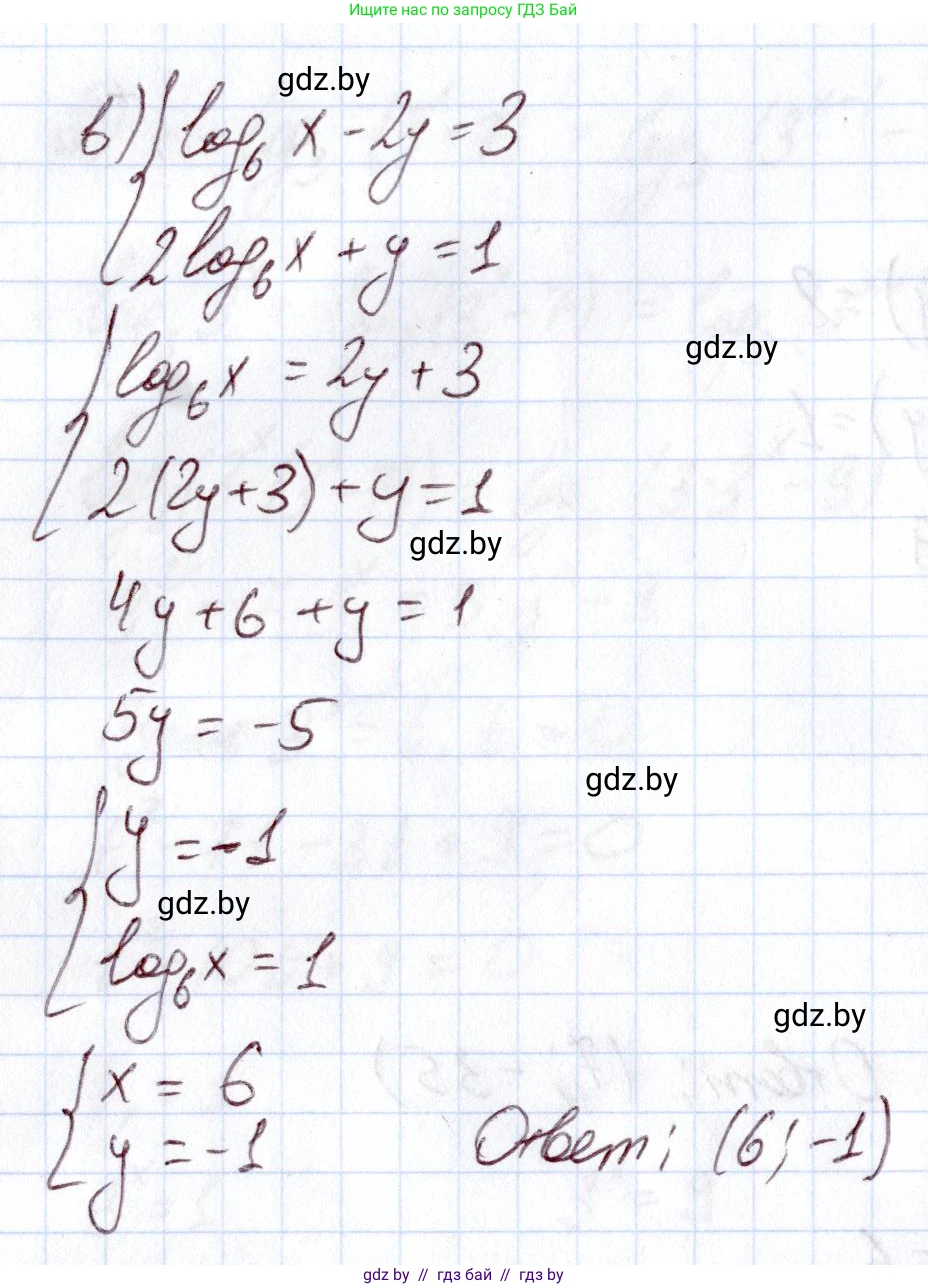 Ищите нас по запросу ГДЗ Бай
gdz.by
в) { log₆ x - 2y = 3
2log₆ x + y = 1
gdz.by
{ log₆ x = 2y + 3
2(2y+3) + y = 1
gdz.by
4y + 6 + y = 1
5y = -5
gdz.by
{ y = -1
gdz.by
log₆ x = 1
gdz.by
{ x = 6
y = -1
Ответ: (6; -1)
gdz.by // гдз бай // гдз by